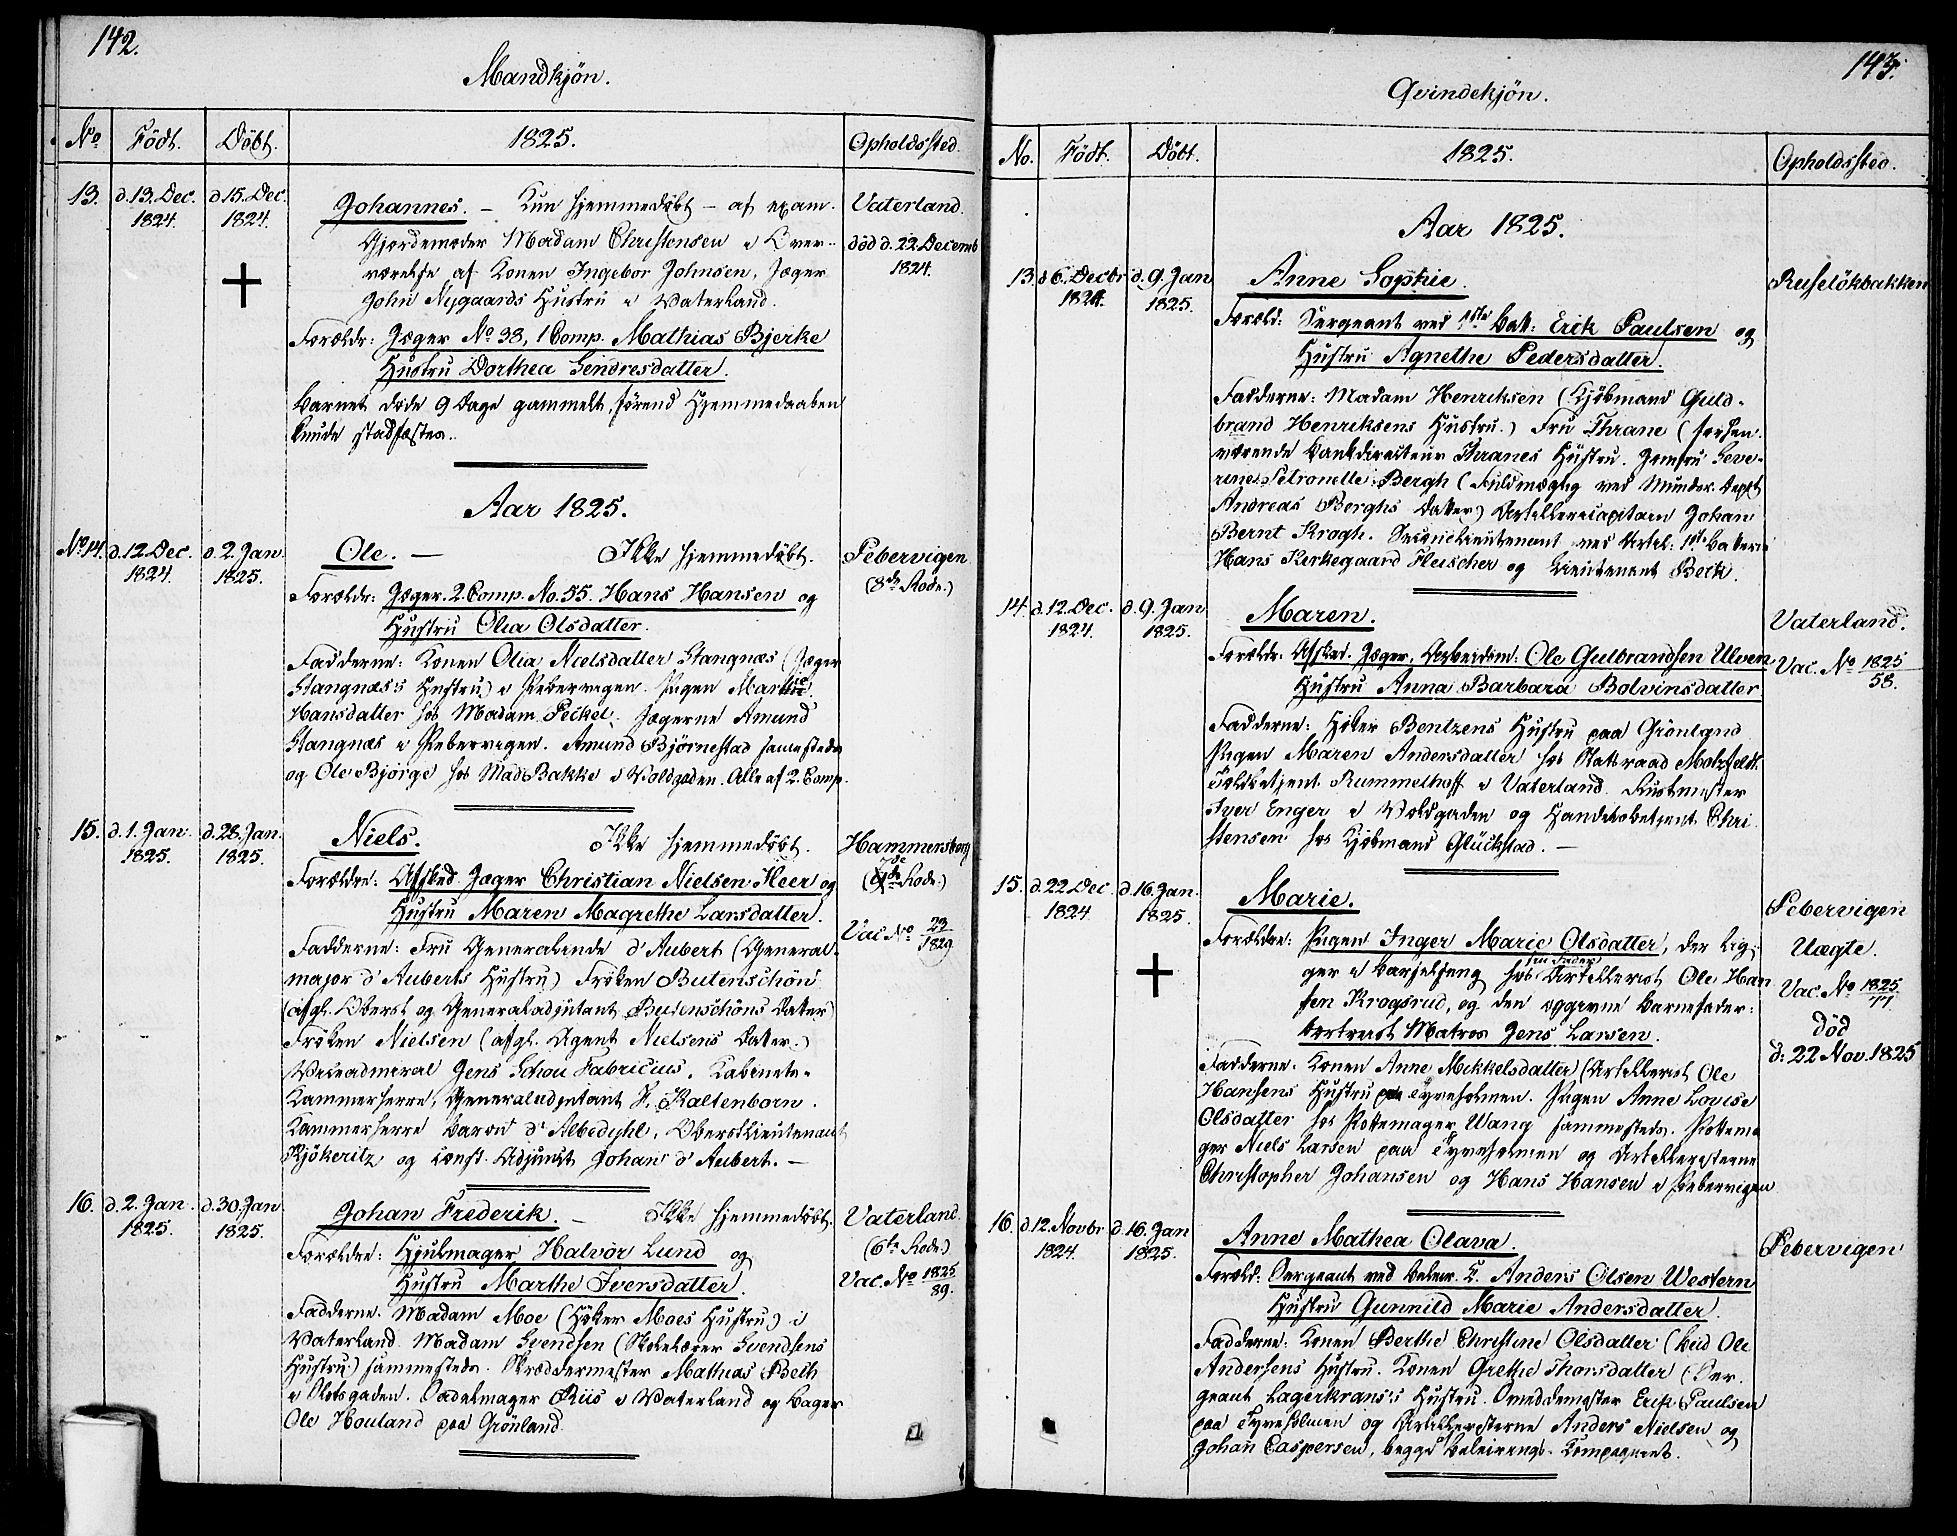 142.
Mandkjön.
No
Födt.
Döbt.
1825.
Opholdssted.
13.
d. 13. Dec.
1824.
d. 15. Dec.
1824.
Johannes. – Kun hjemmedøbt – af exam.
Gjordemoder Madam Christensen i Over-
værelse af Konen Ingebor Johnsen, Jæger
John Nygaards Hustru i Vaterland.
Forældr: Jæger No 38, 1 Comp. Mathias Bjerke
Hustru Dorthea Sendresdatter.
Barnet døde 9 Dage gammelt, førend Hjemmedaaben
kunde stadfæstes.
Vaterland.
död d. 22. Decemb
1824.
Aar 1825.
No 14.
d. 12. Dec.
1824.
d. 2. Jan.
1825.
Ole. – Ikke hjemmedøbt.
Forældr: Jæger. 2. Comp. No. 55. Hans Hansen og
Hustru Olia Olsdatter.
Fadderne: Konen Olia Nielsdatter Stangnæs (Jæger
Stangnæs's Hustru) i Pebervigen. Pigen Marthe
Hansdatter hos Madam Peckel. Jægerne Amund
Stangnæs i Pebervigen. Amund Björnestad sammesteds
og Ole Bjorge hos Mad. Bakke i Voldgaden. Alle af 2. Comp.
Pebervigen
(8de Rode.)
15.
d. 1. Jan.
1825.
d. 28. Jan.
1825.
Niels. Ikke hjemmedøbt.
Forældre: Afsked. Jæger Christian Nielsen Heer og
Hustru Maren Magrethe Larsdatter.
Fadderne: Fru Generalinde d'Aubert (General-
major d'Auberts Hustru) Frøken Butenschön
(afgl. Oberst og Generaladjutant Butenschöns Datter)
Frøken Nielsen (afgl. Agent Nielsens Datter.)
Viceadmiral Jens Schou Fabricius. Kabinets-
Kammerherre, Generaladjutant H. Kaltenborn.
Kammerherre Baron d'Albedyhl, Oberstlieutenant
Kjökeritz og const. Adjunct Johan d'Aubert. –
Hammersborg
(7de Rode.)
Vac No 23
1829
16.
d. 2. Jan.
1825.
d. 30. Jan
1825.
Johan Frederik. – Ikke hjemmedøbt.
Forældre: Hjulmager Halvör Lund og
Hustru Marthe Iversdatter.
Fadderne. Madam Moe (Høker Moes Hustru) i
Vaterland. Madam Svendsen (Skolelærer Svendsens
Hustru) sammesteds. Skræddermester Mathias Beck
i Slotsgaden. Sadelmager Riis i Vaterland og Bager
Ole Houland paa Grönland.
Vaterland.
(6te Rode.)
Vac. No 1825
89.
143.
Qvindekjön.
No.
Födt.
Döbt.
1825.
Opholdssted.
Aar 1825.
13.
d 6. Decbr
1824.
d. 9. Jan
1825.
Anne Sophie.
Foræld: Sergeant ved 1ste Bat: Erik Paulsen og
Hustru Agnethe Pedersdatter.
Fadderne: Madam Henriksen (Kjöbmand Guld-
brand Henriksens Hustru.) Fru Thrane (forhen
værende Bankdirecteur Thranes Hustru. Jomfru Seve-
rine Petronelle Bergh (Fuldmægtig ved Munder. Depot
Andreas Berghs Datter) Artilleriecapitain Johan
Bernt Krogh. Secondlieutenant ved Artil: 1ste Batterie
Hans Kerkegaard Fleischer og Lieutenant Beck.
Ruseløkbakken
14.
d. 12. Dec.
1824.
d. 9. Jan
1825.
Maren.
Forældr. Afsked. Jæger, Arbeidsm: Ole Gulbrandsen Ulven
Hustru Anna Barbara Bolvinsdatter
Fadderne: Høker Bentzens Hustru paa Grönland
Pigen Maren Andersdatter hos Statsraad Motzfeldt.
Toldbetjent Rummelhoff i Vaterland. Rustmester
Iver Enger i Voldgaden og Handelsbetjent Chri
stensen hos Kjöbmand Glückstad. –
Vaterland.
Vac. No 1825
58.
15.
d. 22 Dec
1824.
d. 16. Jan.
1825.
Marie.
Forældre: Pigen Inger Marie Olsdatter, der lig-
ger i Barselseng hos sin Fader Artillerist Ole Han
sen Krogsrud, og den opgivne Barnefader:
Matros Jens Larsen.
Fadderne. Konen Anne Mikkelsdatter (Artillerist Ole
Hansens Hustru paa Tyveholmen. Pigen Anne Lovise
Olsdatter hos Pottemager Wang sammesteds. Pottema
ger Niels Larsen paa Tyveholmen og Artilleristerne
Christopher Johansen og Hans Hansen i Pebervigen
Pebervigen
Uægte.
Vac. No 1825
77.
död
d. 22 Nov. 1825
16.
d. 12. Novbr
1824.
d. 16. Jan
1825.
Anne Mathea Olava.
Foræld: Sergeant ved Beleir. C. Anders Olsen Western
Hustru Gunnild Marie Andersdatter.
Fadderne: Konen Berthe Christine Olsdatter (Ole
Andersens Hustru. Konen Grethe Thorsdatter (Ser
geant Lagerkrans's Hustru. Smeddemester Erik Paulsen
paa Tyveholmen og Artilleristerne Anders Nielsen og
Johan Caspersen, begge Beleirings-Kompagniet.
Pebervigen